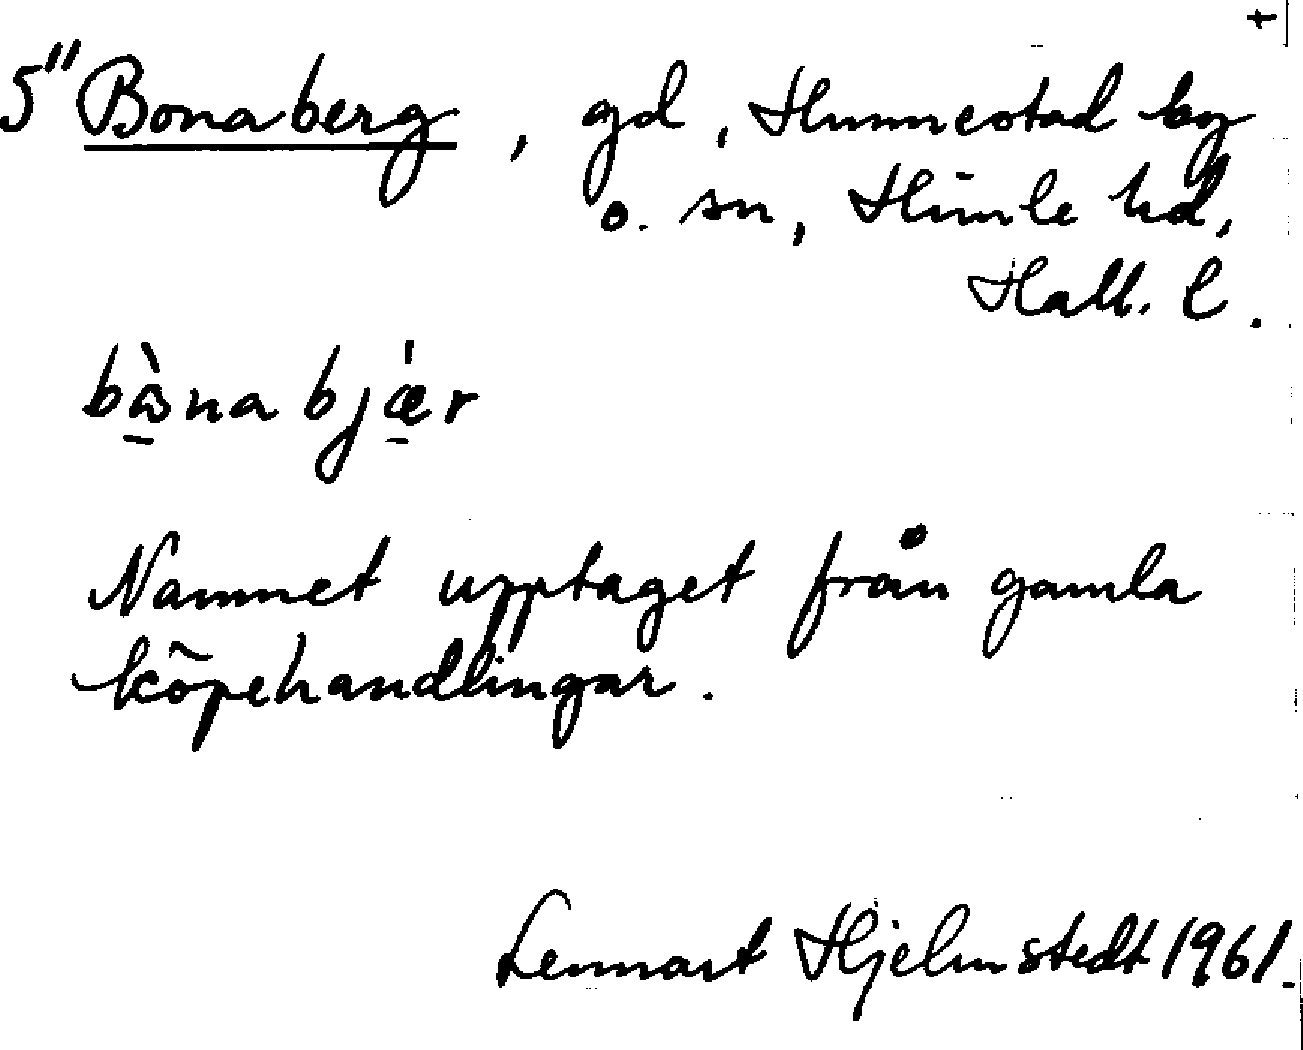 5" Bonaberg, gd, Hunnestad by
o. sn, Himle hd,
Hall. l.
bå̀na bjǽr
Namnet upptaget från gamla
köpehandlingar.
Lennart Hjelmstedt 1961.